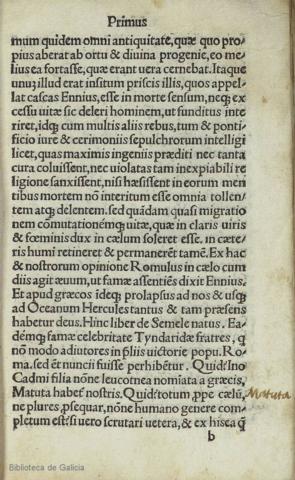 Primus
mum quidem omni antiquitate, quæ quo pro
pius aberat ab ortu & diuina progenie, eo me
lius ea fortasse, quæ erant uera cernebat. Itaque
unũ illud erat insitum priscis illis, quos appel
lat cascas Ennius, esse in morte sensum, neqȝ ex
cessu uitæ sic deleri hominem, ut funditus inte
riret, idqȝ cum multis aliis rebus, tum & ponti-
ficio iure & cerimoniis sepulchrorum intelligi
licet, quas maximis ingeniis præditi nec tanta
cura coluissent, nec uiolatas tam inexpiabili re
ligione sanxissent, nisi hæsissent in eorum men
tibus mortem nõ interitum esse omnia tollen-
tem atqȝ delentem. sed quãdam quasi migratio
nem cõmutationémqȝ uitæ, quæ in claris uiris
& fœminis dux in cælum soleret esse. in cæte-
ris humi retineret & permanerẽt tamẽ. Ex hac
& nostrorum opinione Romulus in cælo cum
diis agit æuum, ut famæ assentiẽs dixit Ennius.
Et apud græcos idemqȝ prolapsus ad nos & usqȝ
ad Oceanum Hercules tantus & tam præsens
habetur deus. Hinc liber de Semele natus. Ea-
démqȝ famæ celebritate Tyndaridæ fratres, q
nõ modo adiutores in prliis uictorie popu. Ro-
ma. sed et nuncii fuisse perhibẽtur. Quid? Ino
Cadmi filia nóne leucotnea nomiata a græcis,
Matuta habet nostris. Quid? totum, ppe cælũ,
ne plures, psequar, nóne humano genere com-
pletum est? si uero scrutari uetera, & ex hisea q
b
Matuta
Biblioteca de Galicia